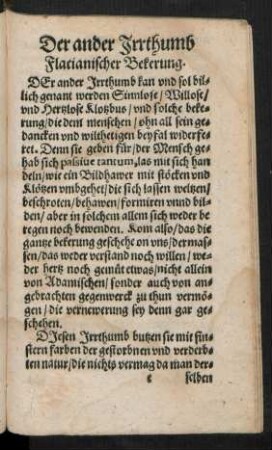 Der ander Jrrthumb
Flacianischer Bekerung.
DEr ander Jrrthumb kan vnd sol bil-
lich genant werden Sinnlose/ Willose/
vnd Hertzlose Klotzbus/ vnd solche beke-
rung/ die dem menschen/ ohn all sein ge-
dancken vnd wilthetigen beyfal widerfe-
ret. Denn sie geben für/ der Mensch ge-
hab sich passiue tantum, las mit sich han
deln/ wie ein Bildhawer mit stöcken vnd
Klötzen vmbgehet/ die sich lassen weltzen/
beschroten/ behawen/ formiren vnnd bil-
den/ aber in solchem allem sich weder be
regen noch bewenden. Kom also/ das die
gantze bekerung geschehe on vns/ dermas-
sen/ das weder verstand noch willen/ we-
der hertz noch gemüt etwas/ nicht allein
von Adamischen/ sonder auch von an-
gebrachten gegenwerck zu thun vermö-
gen/ die vernewerung sey denn gar ge-
schehen.
DJesen Jrrthumb butzen sie mit fin-
stern farben der gestorbnen vnd verderb-
ten natur/ die nichts vermag da man der-
e selben